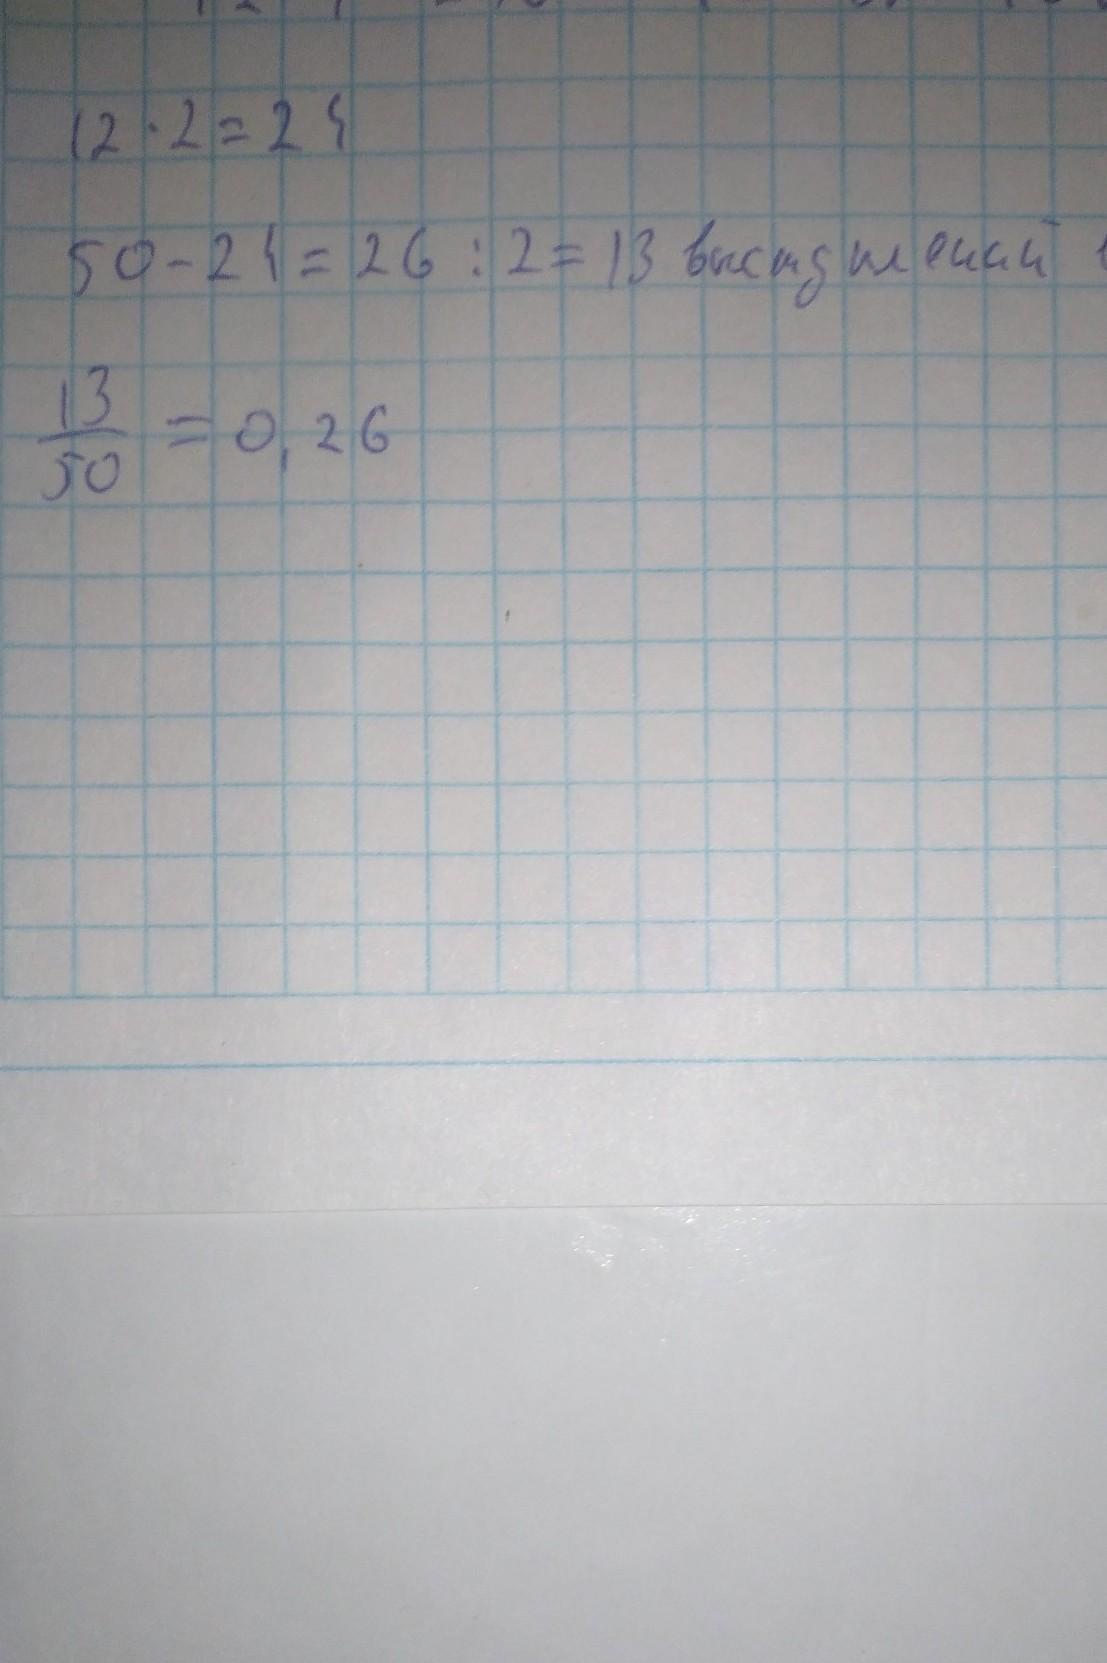 12 · 2 = 24
50 - 24 = 26 : 2 = 13 выступлений
13/50 = 0,26